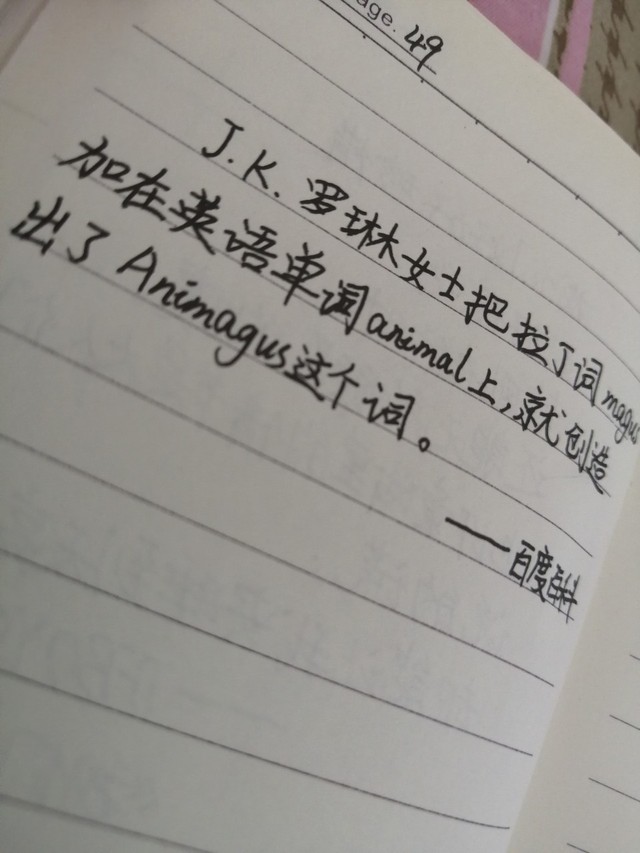 age. 49
J.K. 罗琳女士把拉丁词 magus
加在英语单词animal上,就创造
出了 Animagus这个词。
——百度百科